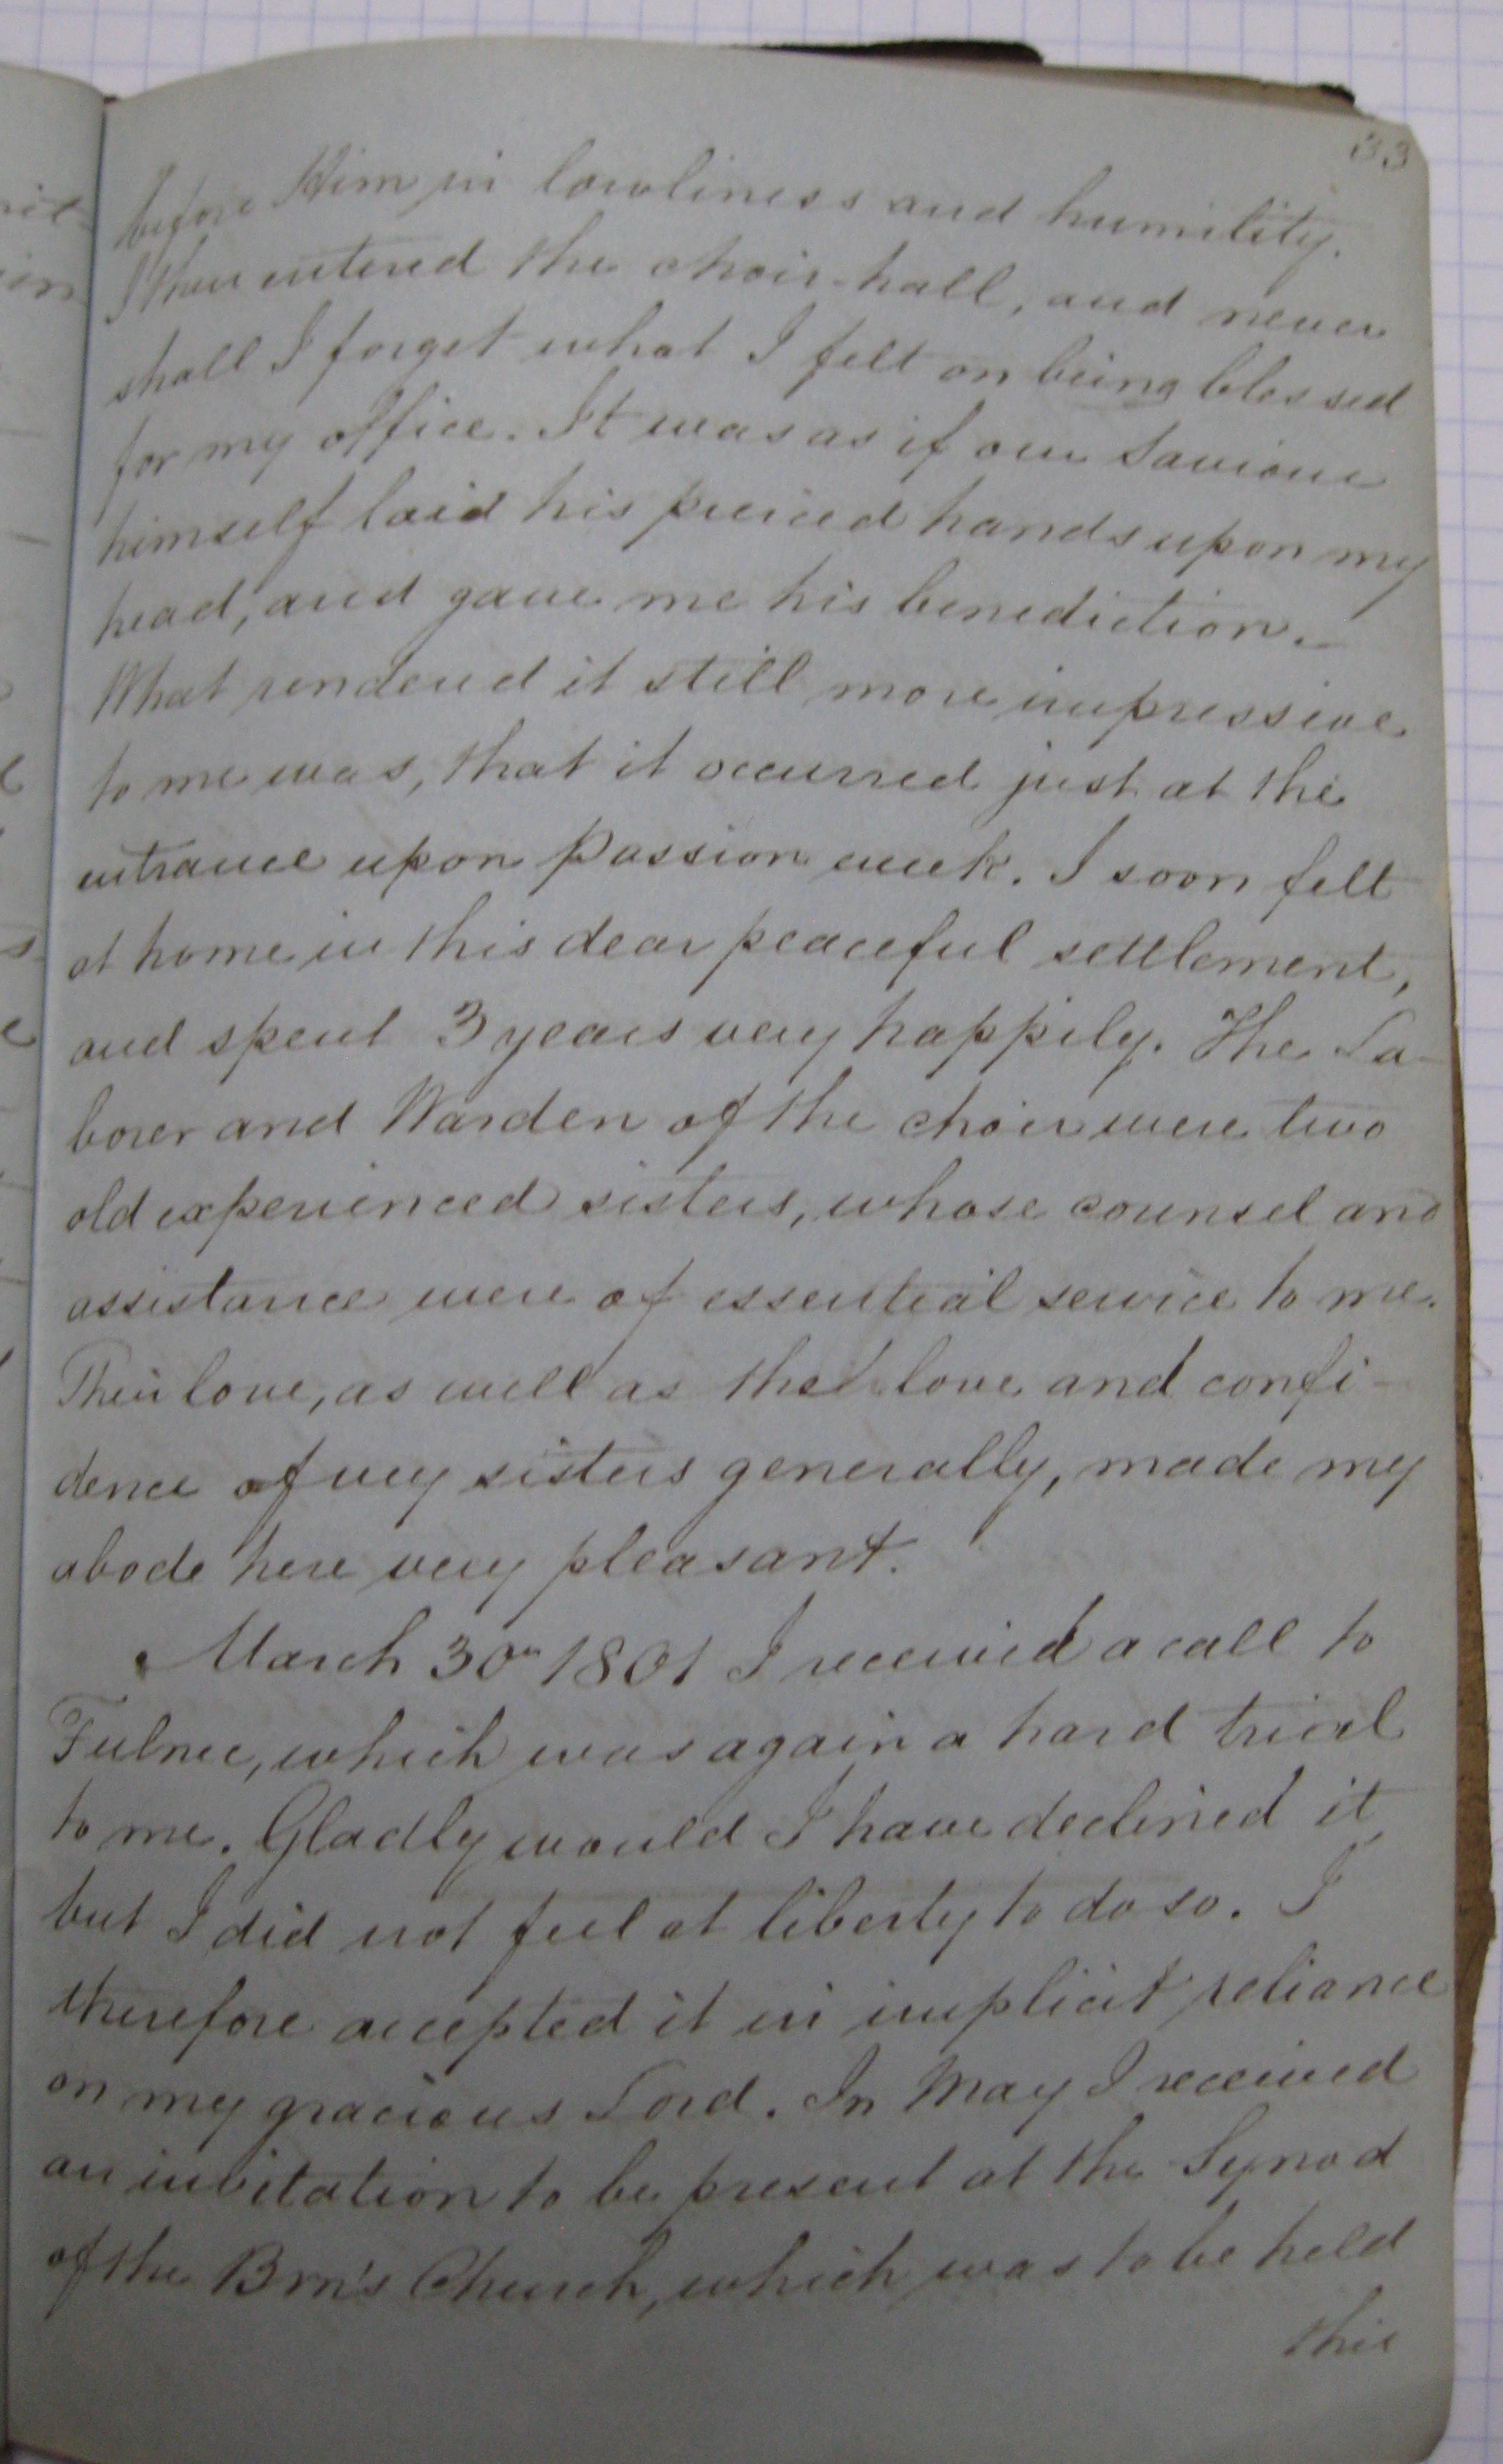 33
before Him in lowliness and humility.
I then entered the choir-hall, and never
shall I forget what I felt on being blessed
for my office. It was as if our Saviour
himself laid his pierced hands upon my
head, and gave me his benediction.
What rendered it still more impressive
to me was, that it occurred just at the
entrance upon Passion week. I soon felt
at home in this dear peaceful settlement,
and spent 3 years very happily. The La-
borer and Warden of the choir were two
old experienced sisters, whose counsel and
assistance were of essential service to me.
Their love, as well as the love and confi-
dence of my sisters generally, made my
abode here very pleasant.
March 30th 1801 I received a call to
Fulnec, which was again a hard trial
to me. Gladly would I have declined it,
but I did not feel at liberty to do so. I
therefore accepted it in implicit reliance
on my gracious Lord. In May I received
an invitation to be present at the Synod
of the Brn's Church, which was to be held
this